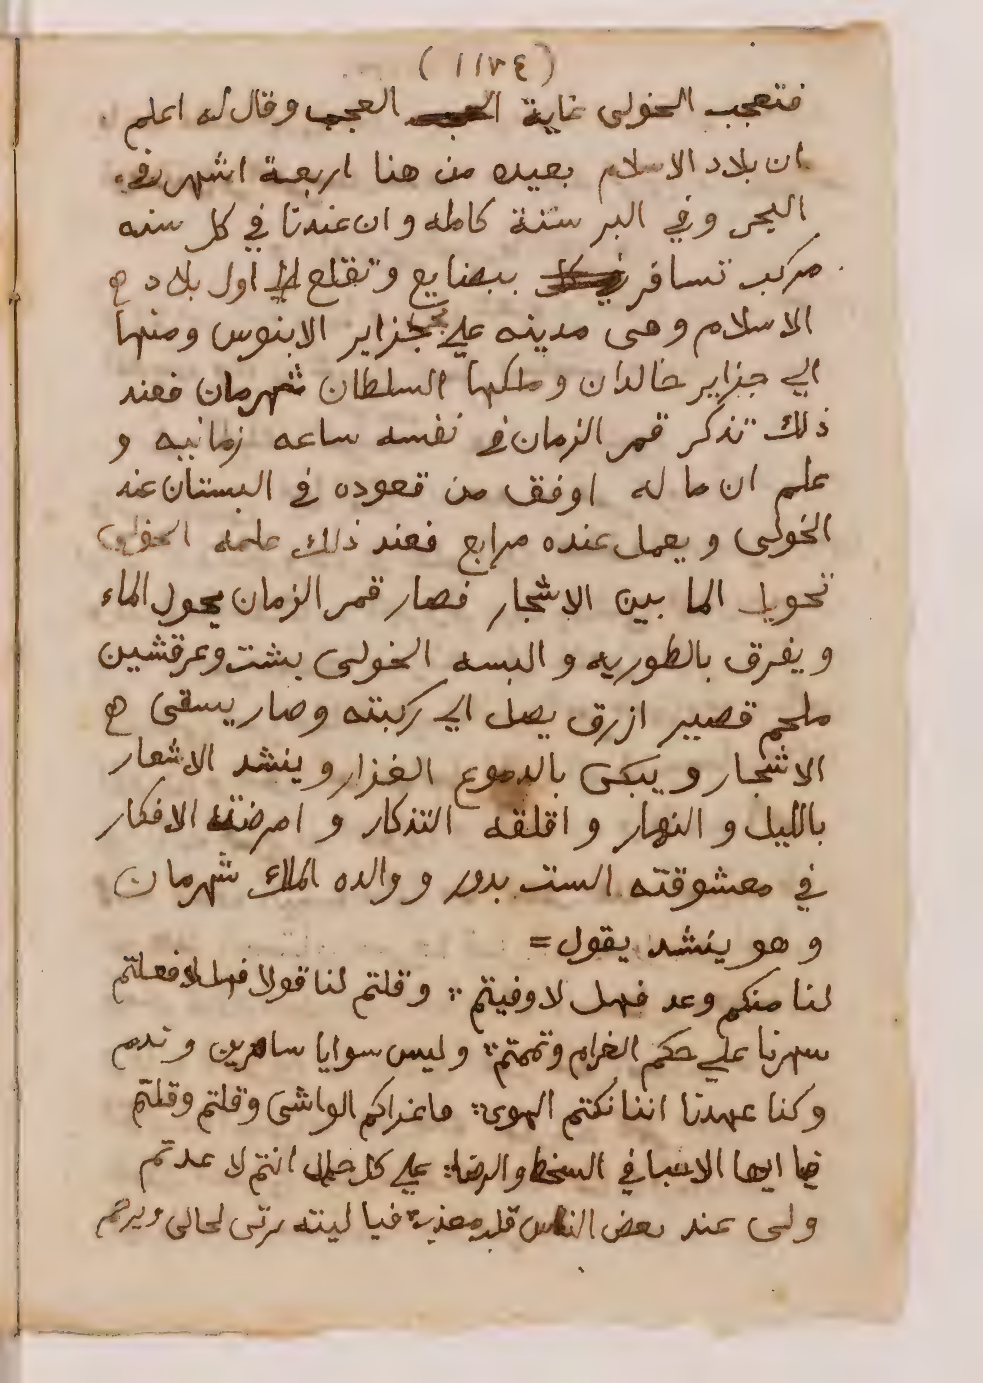 (١١٧٤)
فتعجب الخولى غاية العجب وقال له اعلم
ان بلاد الاسلام بعيده من هنا اربعة اشهر في
البحر وفي البر سنة كامله وان عندنا في كل سنه
مركب تسافر ببضايع وتقلع الى اول بلاد
الاسلام وهى مدينه علي جزاير الابنوس ومنها
الي جزاير خالدان وملكها السلطان شهرمان فعند
ذلك تذكر قمر الزمان في نفسه ساعه زمانيه و
علم ان ما له اوفق من قعوده في البستان عند
الخولى ويعمل عنده مرابع فعند ذلك علمه الخولى
تحويل الما بين الاشجار فصار قمر الزمان يحول الماء
ويفرق بالطوريه والبسه الخولى بشت وعرقشين
ملحم قصير ازرق يصل الي ركبته وصار يسقى
الاشجار ويبكى بالدموع الغزار وينشد الاشعار
بالليل والنهار واقلقه التذكار وامرضته الافكار
في معشوقته الست بدور ووالده الملك شهرمان
وهو ينشد يقول =
لنا منكم وعد فهل لا وفيتم : وقلتم لنا قولا فهل لا فعلتم
سهرنا علي حكم الغرام ونمتم : وليس سوايا ساهرين ونوم
وكنا عهدنا اننا نكتم الهوى : فاغراكم الواشى وقلتم وقلتم
فيا ايها الاحباب في السخط والرضا : علي كل حال انتم لا عدتم
ولى عند بعض الناس قلب معذب : فيا ليته يرثى لحالى ويرحم